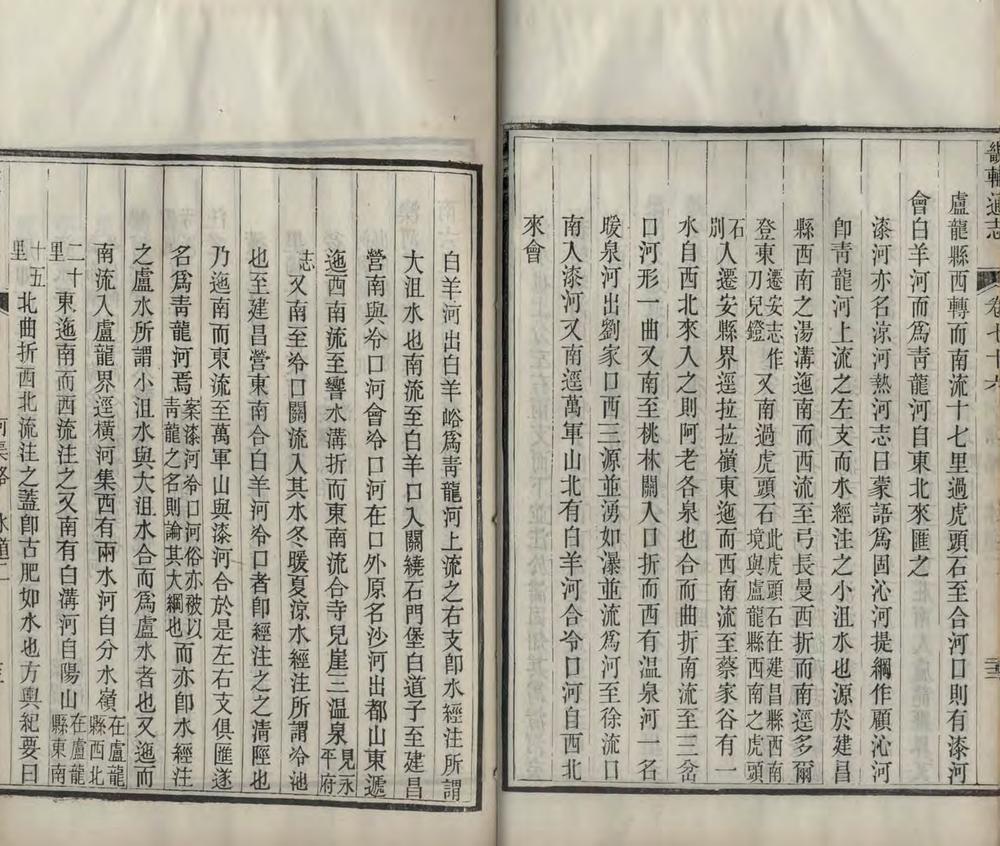 畿輔通志
卷七十八
盧龍縣西轉而南流十七里過虎頭石至合河口則有漆河
會白羊河而爲靑龍河自東北來匯之
漆河亦名涼河熱河志曰蒙語爲固沁河提綱作顧沁河
卽靑龍河上流之左支而水經注之小沮水也源於建昌
縣西南之湯溝迤南而西流至弓長曼西折而南逕多爾
登東遷安志作刀兒鐙又南過虎頭石此虎頭石在建昌縣西南境與盧龍縣西南之虎頭
石別入遷安縣界逕拉拉嶺東迤而西南流至蔡家谷有一
水自西北來入之則阿老各泉也合而曲折南流至三岔
口河形一曲又南至桃林關入口折而西有温泉河一名
暖泉河出劉家口西三源並湧如瀑並流爲河至徐流口
南入漆河又南逕萬軍山北有白羊河合冷口河自西北
來會
白羊河出白羊峪爲靑龍河上流之右支卽水經注所謂
大沮水也南流至白羊口入關繞石門堡白道子至建昌
營南與冷口河會冷口河在口外原名沙河出都山東遞
迤西南流至響水溝折而東南流合寺兒崖三温泉見永平府
志又南至冷口關流入其水冬暖夏涼水經注所謂冷池
也至建昌營東南合白羊河冷口者卽經注之之淸陘也
乃迤南而東流至萬軍山與漆河合於是左右支俱匯遂
名爲靑龍河焉案漆河冷口河俗亦被以靑龍之名則論其大綱也而亦卽水經注
之盧水所謂小沮水與大沮水合而爲盧水者也又迤而
南流入盧龍界逕橫河集西有兩水河自分水嶺在盧龍縣西北
二十里東迤南而西流注之又南有白溝河自陽山在盧龍縣東南
十五里北曲折西北流注之蓋卽古肥如水也方輿紀要曰
河渠略
水道二